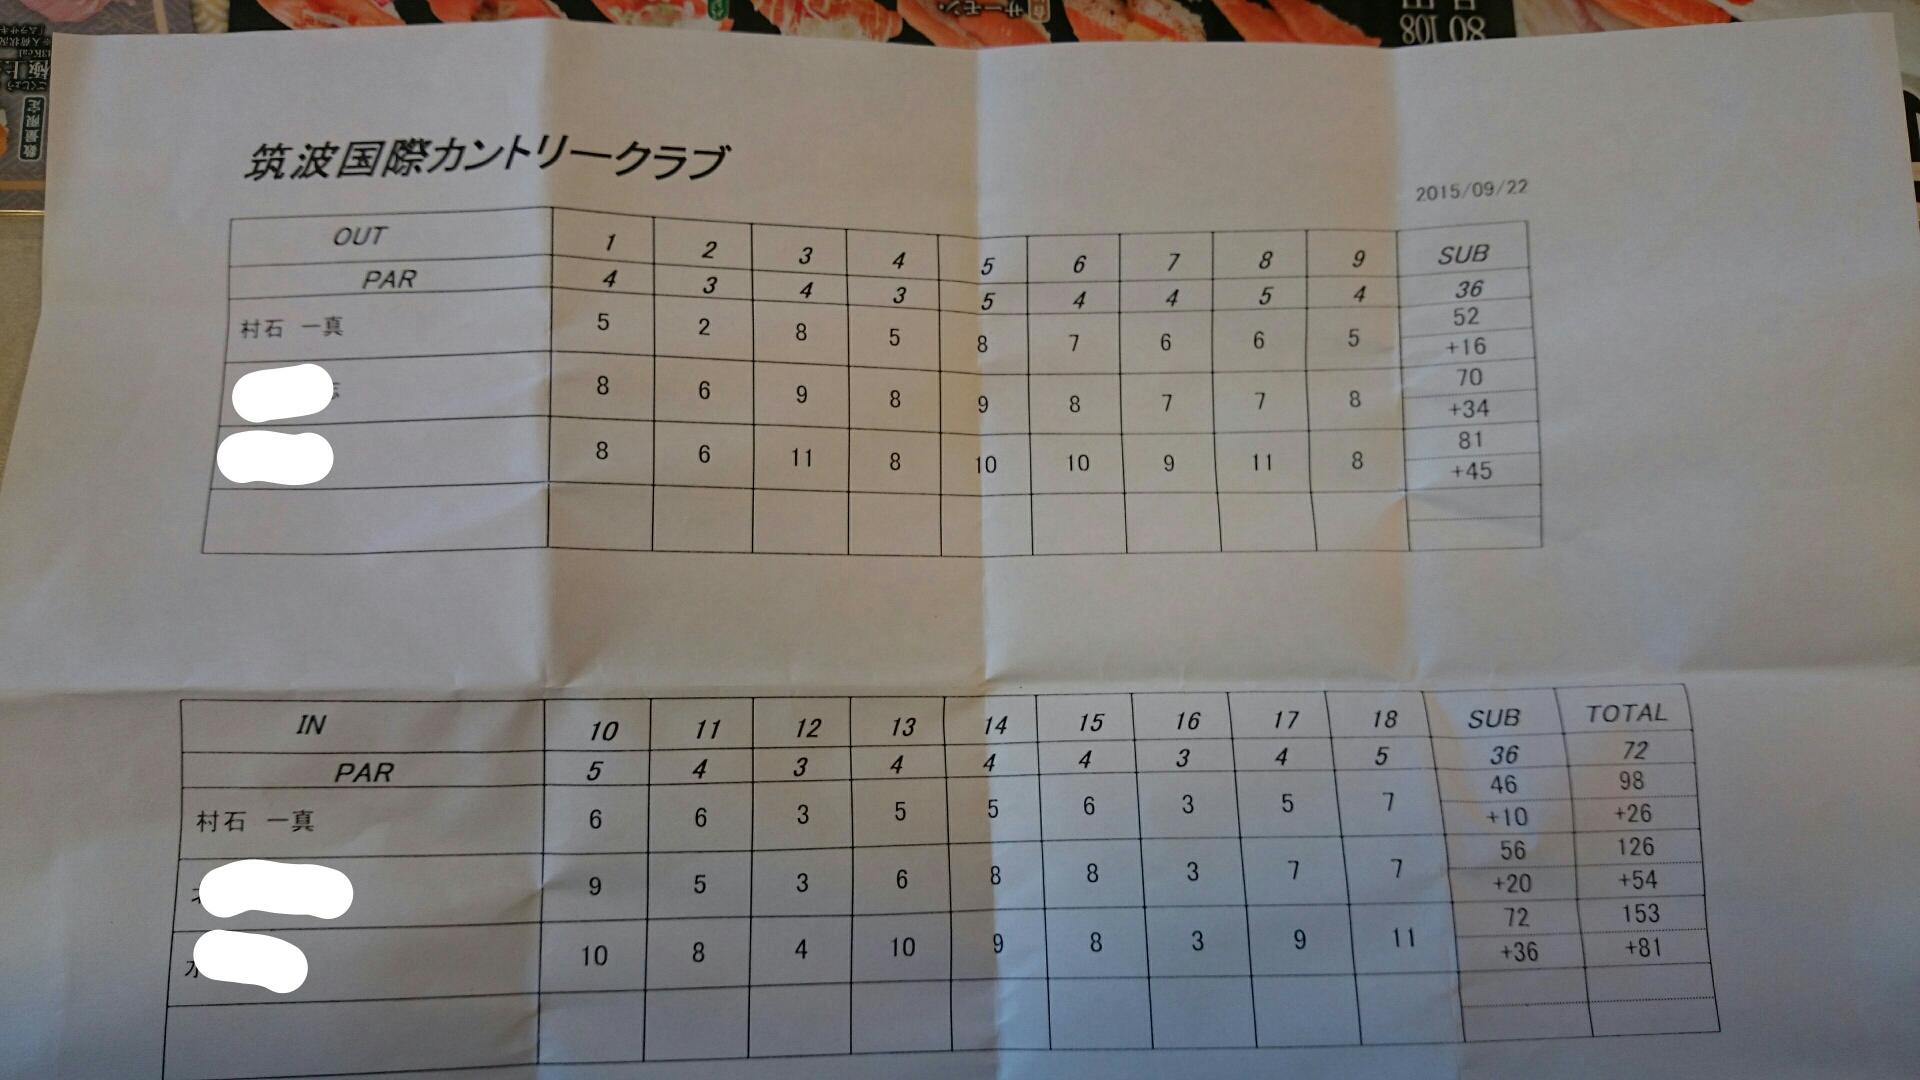 サーモン
80 108
数量限定
筑波国際カントリークラブ
2015/09/22
OUT 1 2 3 4 5 6 7 8 9 SUB
PAR 4 3 4 3 5 4 4 5 4 36
村石 一真 5 2 8 5 8 7 6 6 5 52
+16
8 6 9 8 9 8 7 7 8 70
+34
8 6 11 8 10 10 9 11 8 81
+45
IN 10 11 12 13 14 15 16 17 18 SUB TOTAL
PAR 5 4 3 4 4 4 3 4 5 36 72
村石 一真 6 6 3 5 5 6 3 5 7 46 98
+10 +26
9 5 3 6 8 8 3 7 7 56 126
+20 +54
水 10 8 4 10 9 8 3 9 11 72 153
+36 +81